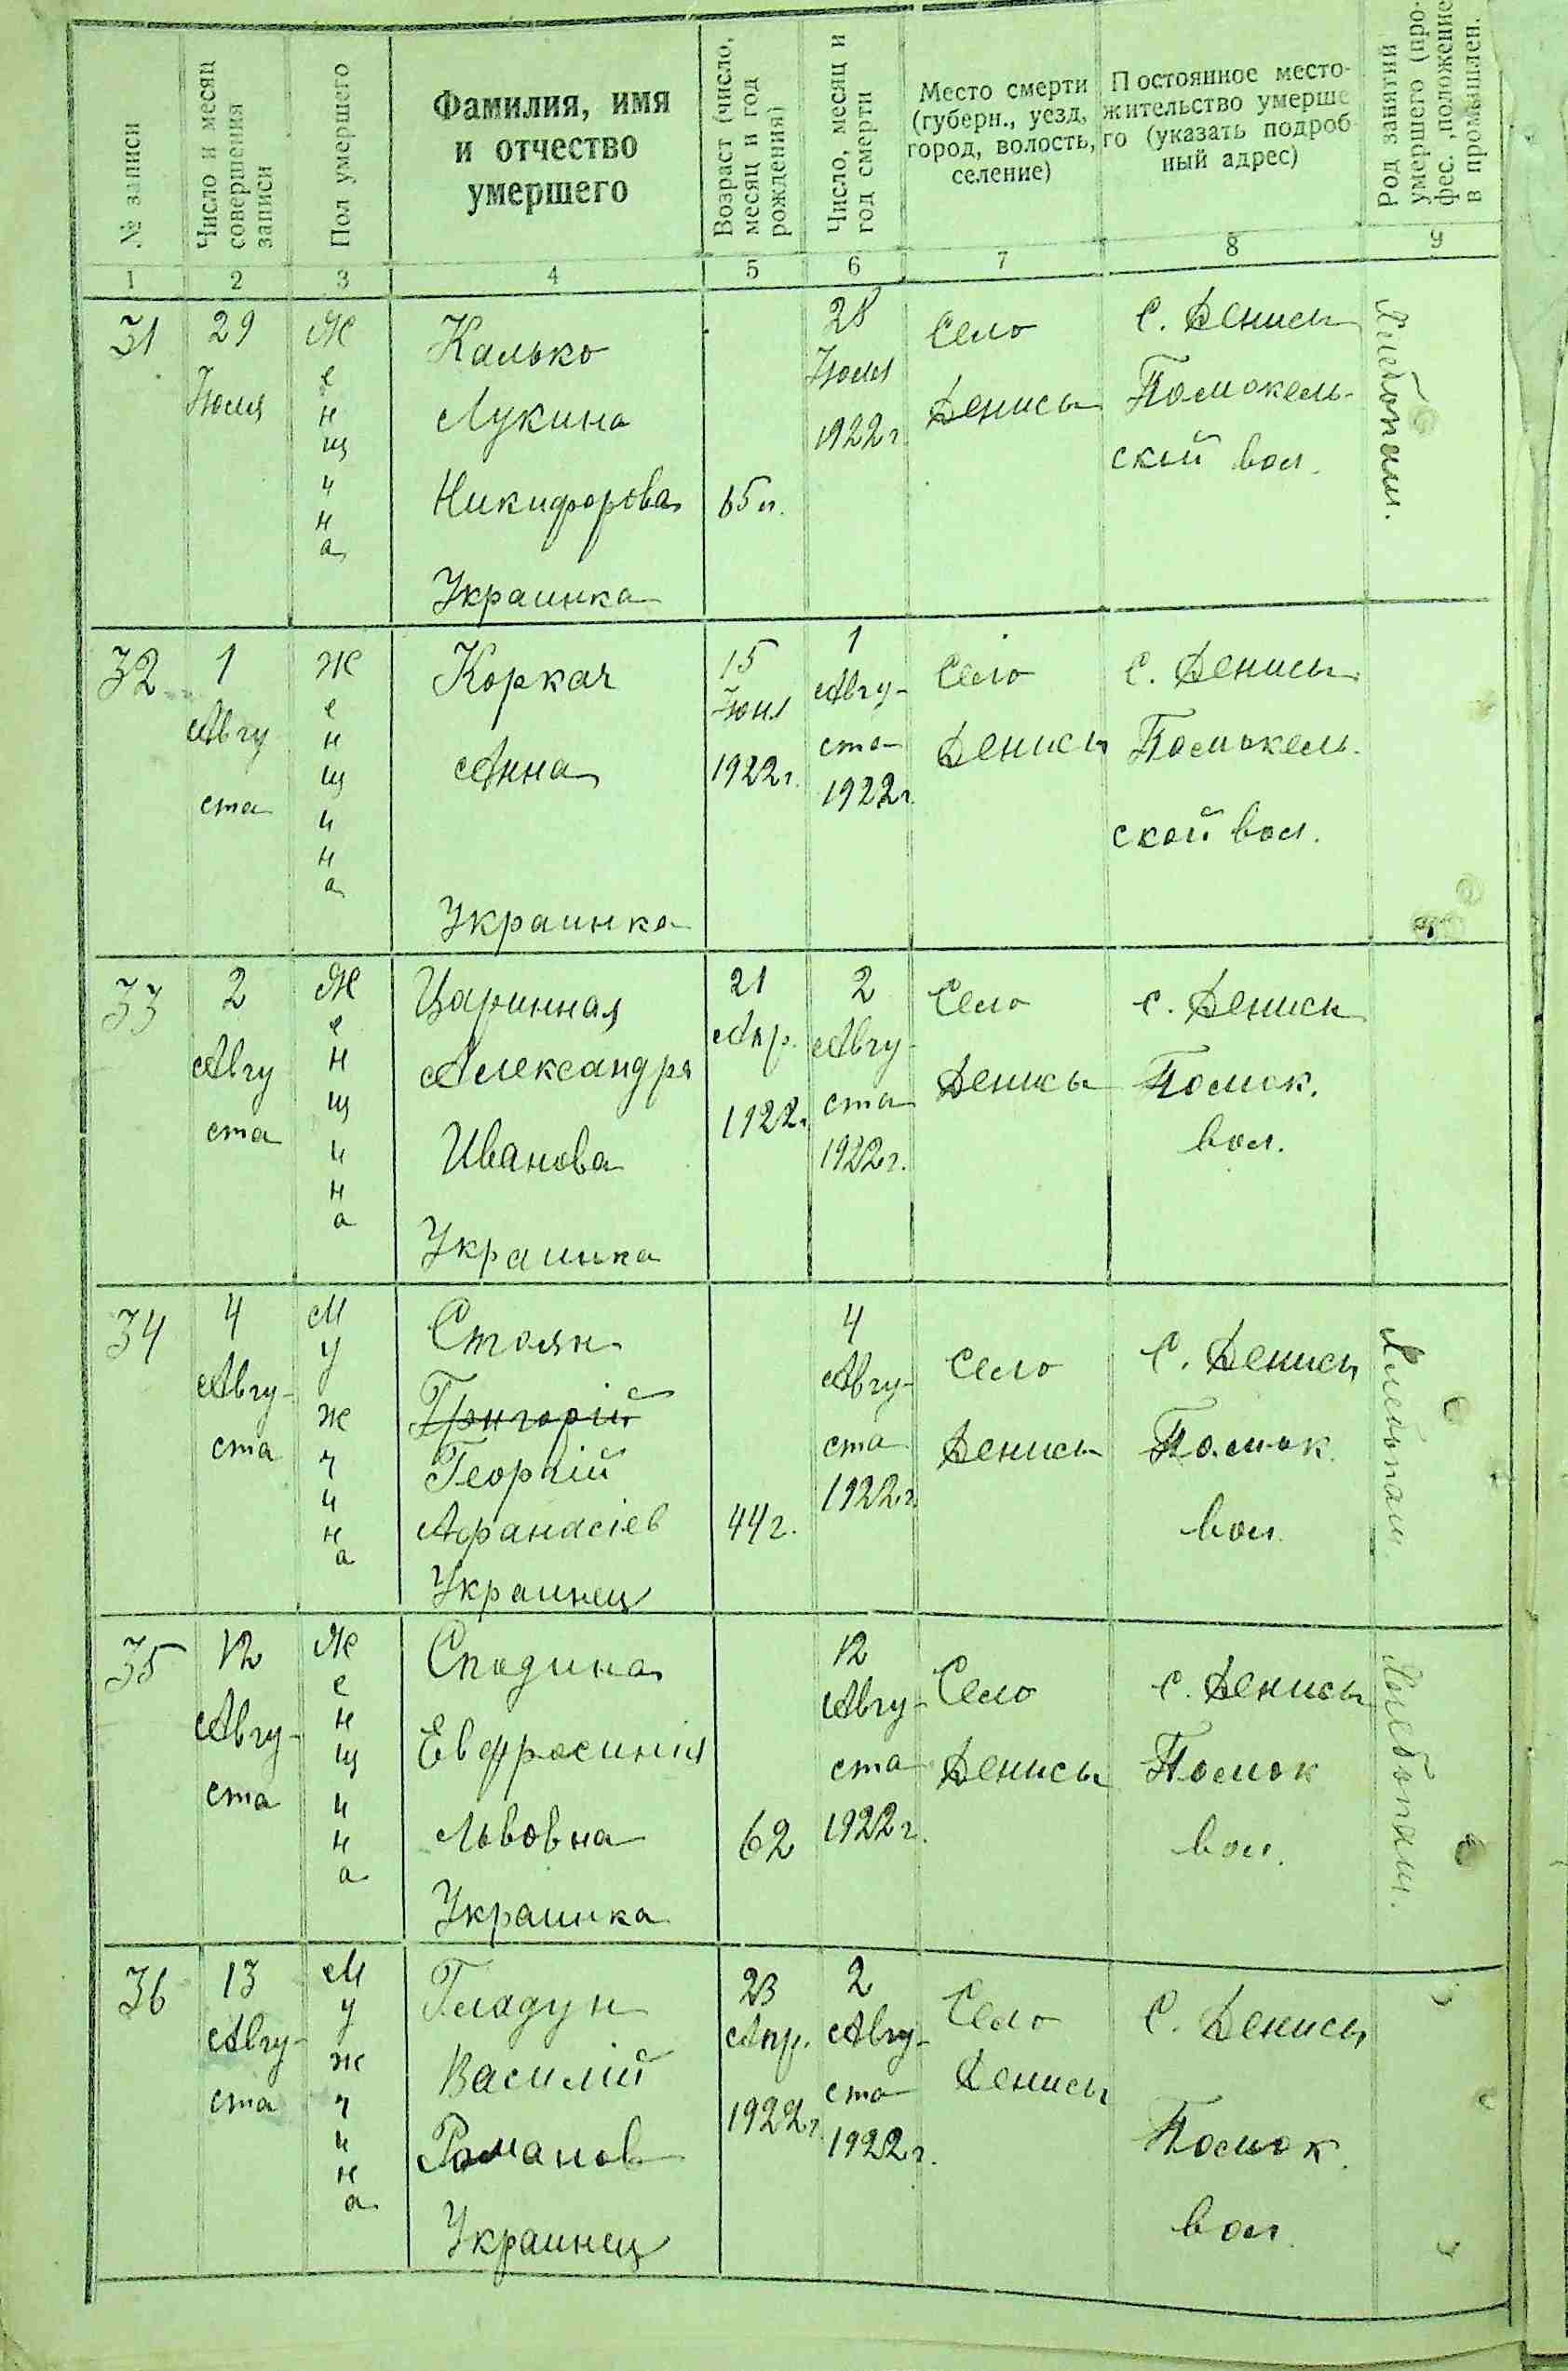 № записи
Число и месяц
совершения
записи
Пол умершего
Фамилия, имя
и отчество
умершего
Возраст (число,
месяц и год
рождения)
Число, месяц и
год смерти
Место смерти
(губерн., уезд,
город, волость,
селение)
Постоянное место-
жительство умерше
го (указать подроб-
ный адрес)
Род занятий
умершего (про-
фес., положение
в промышлен.
1 2 3 4 5 6 7 8 9
31
29
Июля
Женщина
Калько
Лукина
Никифорова
Украинка
65 л.
28
Июля
1922 г.
Село
Денисы
С. Денисы
Помокель-
ской вол.
Хлебопаш.
32
1
Авгу
ста
Женщина
Коркач
Анна
Украинка
15
Июл
1922 г.
1
Авгу-
ста
1922 г.
Село
Денисы
С. Денисы
Помокель-
ской вол.
33
2
Авгу
ста
Женщина
Царинная
Александра
Иванова
Украинка
21
Апр.
1922 г.
2
Авгу-
ста
1922 г.
Село
Денисы
с. Денисы
Помок.
вол.
34
4
Авгу-
ста
Мужчина
Стоян
Григорій
Георгій
Афанасіев
Украинец
44 г.
4
Авгу-
ста
1922 г.
Село
Денисы
С. Денисы
Помок.
вол.
Хлебопаш.
35
12
Авгу-
ста
Женщина
Сподина
Евфросинія
Львовна
Украинка
62
12
Авгу-
ста
1922 г.
Село
Денисы
с. Денисы
Помок
вол.
Хлебопаш.
36
13
Авгу-
ста
Мужчина
Гладун
Василій
Романов
Украинец
23
Апр.
1922 г.
2
Авгу-
ста
1922 г.
Село
Денисы
С. Денисы
Помок.
вол.